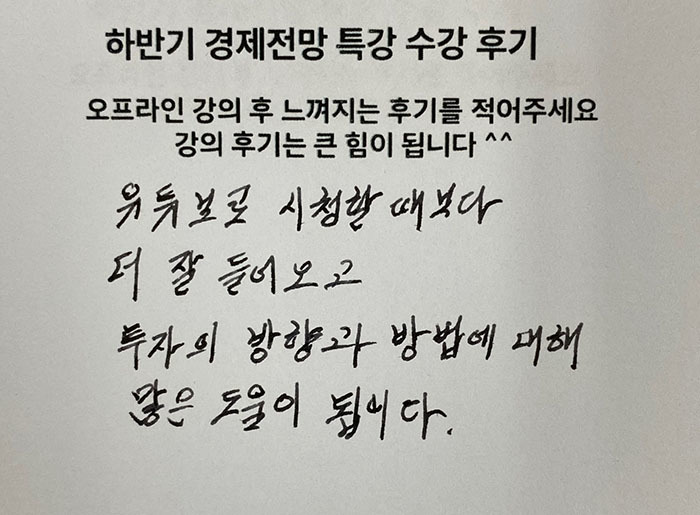 하반기 경제전망 특강 수강 후기
오프라인 강의 후 느껴지는 후기를 적어주세요
강의 후기는 큰 힘이 됩니다 ^^
유튜브로 시청할 때보다
더 잘 들어오고
투자의 방향과 방법에 대해
많은 도움이 됩니다.